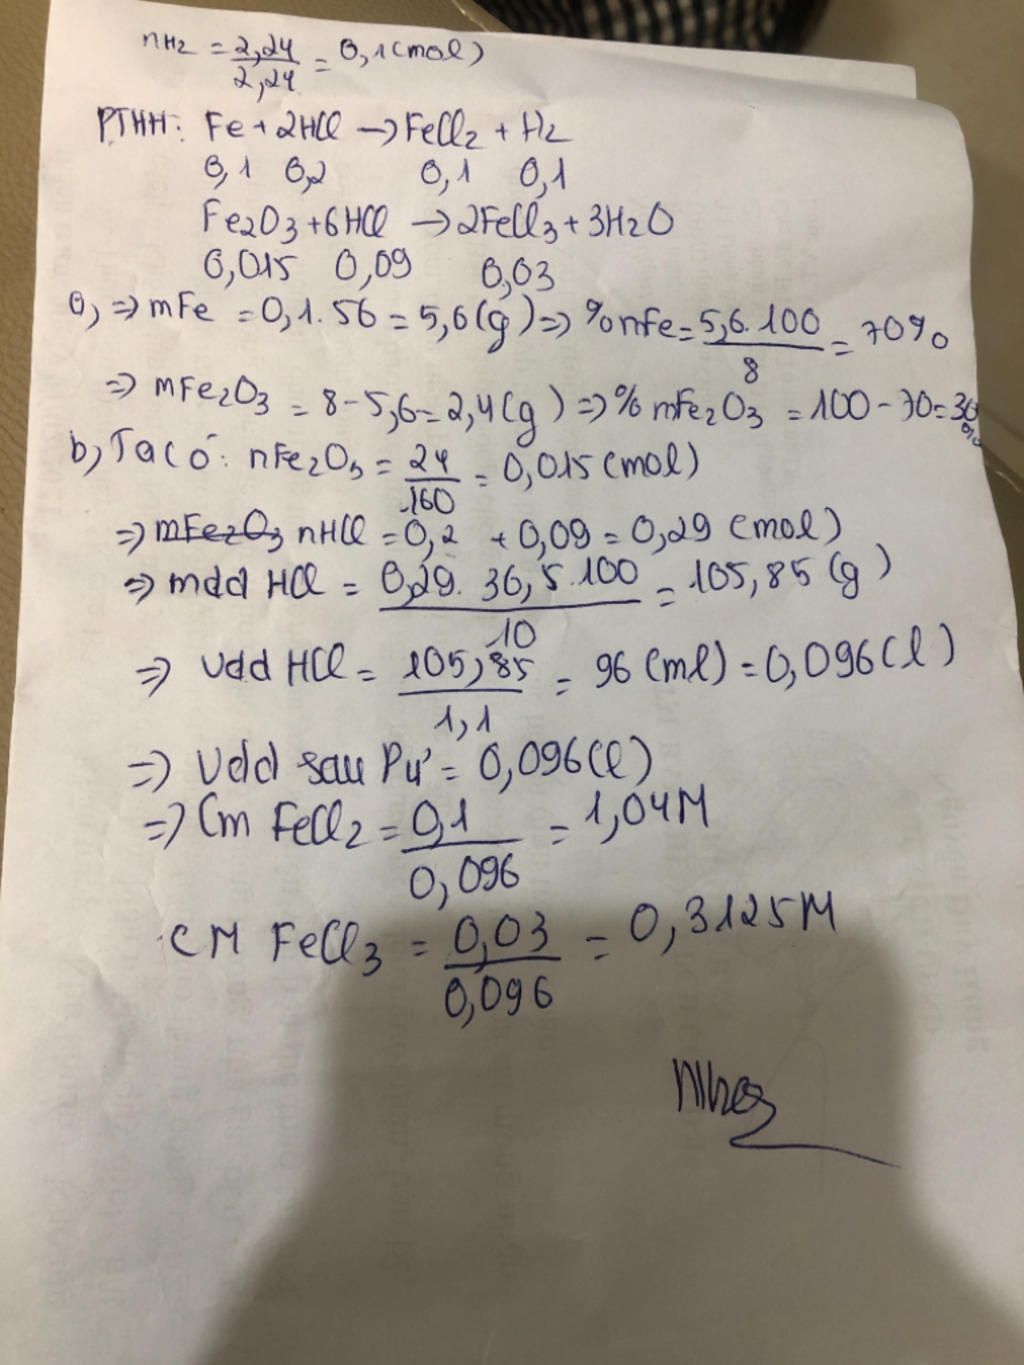 nH2 = 2,24/2,24 = 0,1(mol)
PTHH: Fe + 2HCl → FeCl2 + H2
0,1 0,2 0,1 0,1
Fe2O3 + 6HCl → 2FeCl3 + 3H2O
0,015 0,09 0,03
a, => mFe = 0,1.56 = 5,6(g) => %mFe = 5,6.100/8 = 70%
=> mFe2O3 = 8-5,6 = 2,4(g) => % mFe2O3 = 100-70=30%
b, Ta có: nFe2O3 = 24/160 = 0,015 (mol)
=> mFe2O3 nHCl = 0,2 + 0,09 = 0,29 (mol)
=> mdd HCl = 0,29. 36,5.100/10 = 105,85 (g)
=> Vdd HCl = 105,85/1,1 = 96 (ml) = 0,096(l)
=> Vdd sau Pư = 0,096(l)
=> Cm FeCl2 = 0,1/0,096 = 1,04M
CM FeCl3 = 0,03/0,096 = 0,3125M